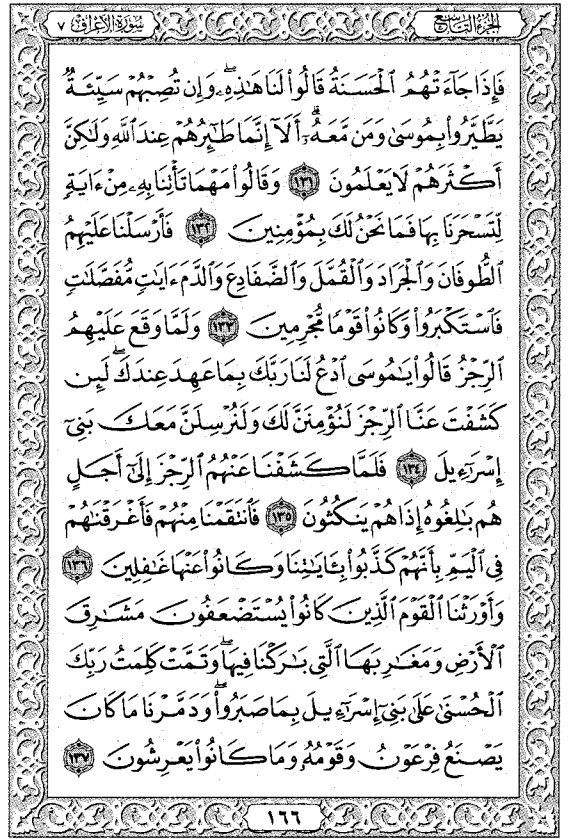 الجزء التاسع
سورة الأعراف ٧
فَإِذَا جَآءَتْهُمُ ٱلْحَسَنَةُ قَالُوا۟ لَنَا هَـٰذِهِۦۖ وَإِن تُصِبْهُمْ سَيِّئَةٌ
يَطَّيَّرُوا۟ بِمُوسَىٰ وَمَن مَّعَهُۥٓۗ أَلَآ إِنَّمَا طَـٰٓئِرُهُمْ عِندَ ٱللَّهِ وَلَـٰكِنَّ
أَكْثَرَهُمْ لَا يَعْلَمُونَ ١٣١ وَقَالُوا۟ مَهْمَا تَأْتِنَا بِهِۦ مِنْ ءَايَةٍ
لِّتَسْحَرَنَا بِهَا فَمَا نَحْنُ لَكَ بِمُؤْمِنِينَ ١٣٢ فَأَرْسَلْنَا عَلَيْهِمُ
ٱلطُّوفَانَ وَٱلْجَرَادَ وَٱلْقُمَّلَ وَٱلضَّفَادِعَ وَٱلدَّمَ ءَايَـٰتٍ مُّفَصَّلَـٰتٍ
فَٱسْتَكْبَرُوا۟ وَكَانُوا۟ قَوْمًا مُّجْرِمِينَ ١٣٣ وَلَمَّا وَقَعَ عَلَيْهِمُ
ٱلرِّجْزُ قَالُوا۟ يَـٰمُوسَى ٱدْعُ لَنَا رَبَّكَ بِمَا عَهِدَ عِندَكَۖ لَئِن
كَشَفْتَ عَنَّا ٱلرِّجْزَ لَنُؤْمِنَنَّ لَكَ وَلَنُرْسِلَنَّ مَعَكَ بَنِىٓ
إِسْرَٰٓءِيلَ ١٣٤ فَلَمَّا كَشَفْنَا عَنْهُمُ ٱلرِّجْزَ إِلَىٰٓ أَجَلٍ
هُم بَـٰلِغُوهُ إِذَا هُمْ يَنكُثُونَ ١٣٥ فَٱنتَقَمْنَا مِنْهُمْ فَأَغْرَقْنَـٰهُمْ
فِى ٱلْيَمِّ بِأَنَّهُمْ كَذَّبُوا۟ بِـَٔايَـٰتِنَا وَكَانُوا۟ عَنْهَا غَـٰفِلِينَ ١٣٦
وَأَوْرَثْنَا ٱلْقَوْمَ ٱلَّذِينَ كَانُوا۟ يُسْتَضْعَفُونَ مَشَـٰرِقَ
ٱلْأَرْضِ وَمَغَـٰرِبَهَا ٱلَّتِى بَـٰرَكْنَا فِيهَاۖ وَتَمَّتْ كَلِمَتُ رَبِّكَ
ٱلْحُسْنَىٰ عَلَىٰ بَنِىٓ إِسْرَٰٓءِيلَ بِمَا صَبَرُوا۟ۖ وَدَمَّرْنَا مَا كَانَ
يَصْنَعُ فِرْعَوْنُ وَقَوْمُهُۥ وَمَا كَانُوا۟ يَعْرِشُونَ ١٣٧
١٦٦